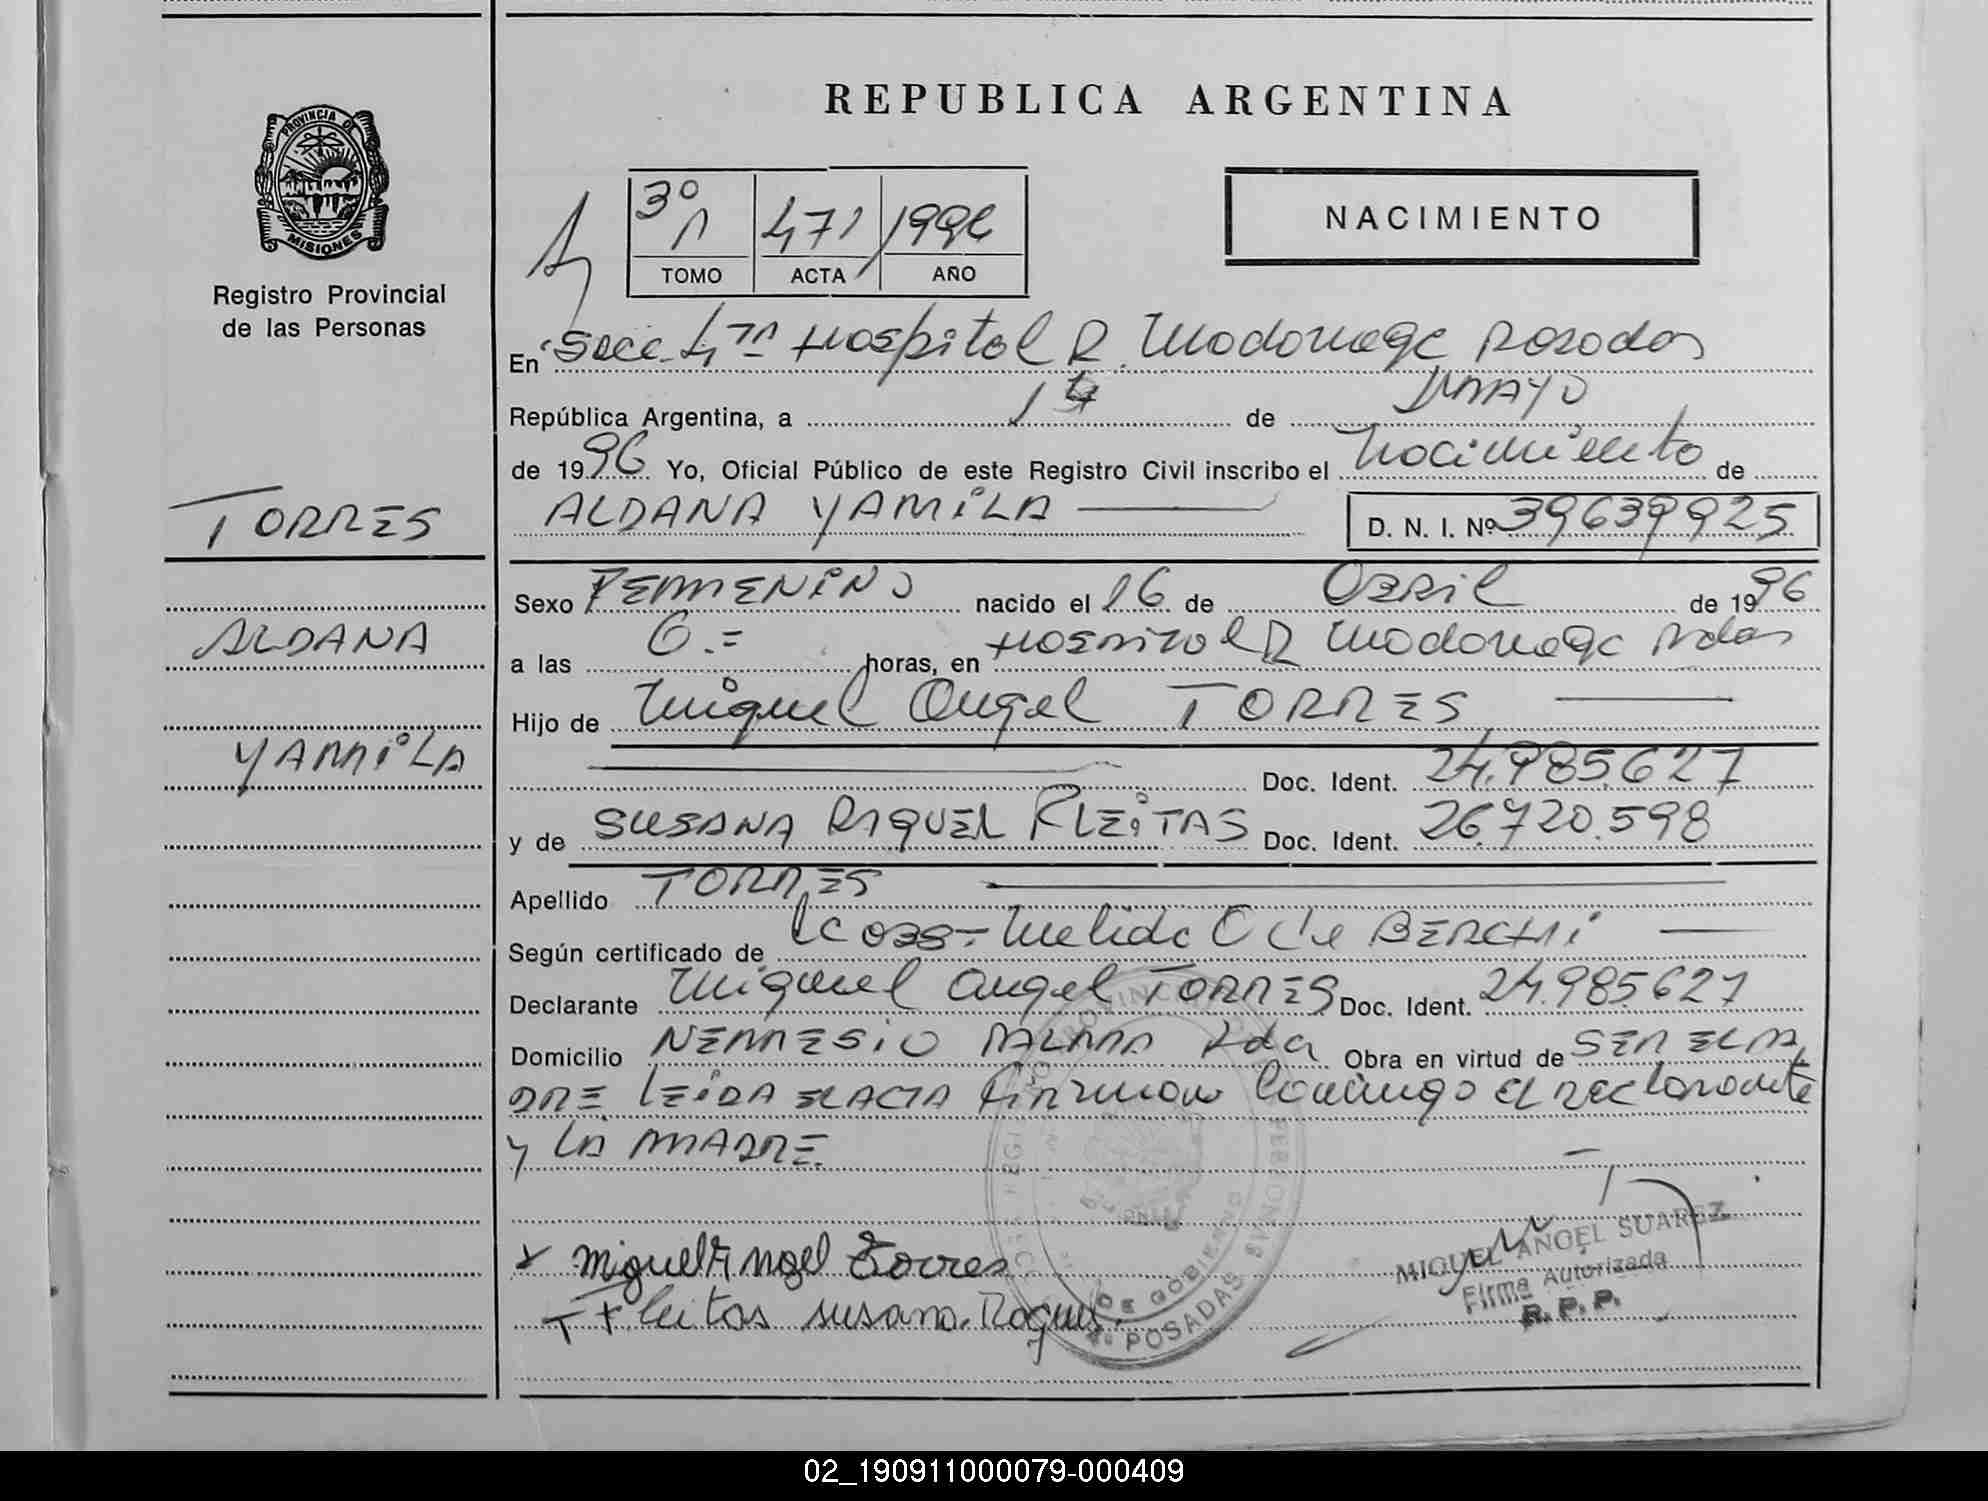 REPUBLICA ARGENTINA
PROVINCIA DE
MISIONES
Registro Provincial
de las Personas
3º 471 1996
TOMO ACTA AÑO
NACIMIENTO
En Secc 4ta Hospital R. Madariaga Posadas
República Argentina, a 14 de MAYO
de 1996 Yo, Oficial Público de este Registro Civil inscribo el Nacimiento de
ALDANA YAMiLA
D. N. I. Nº 39639925
TORRES
ALDANA
YAMiLA
Sexo FEMENiNO nacido el 16 de ABRiL de 1996
a las 6.= horas, en HOSPiTAL R Madariaga Pdas
Hijo de Miguel Angel TORRES
Doc. Ident. 24.985.627
y de SUSANA RAQUEL FLEiTAS Doc. Ident. 26.720.598
Apellido TORRES
Según certificado de BERCHi
Declarante Miguel Angel TORRES Doc. Ident. 24.985.627
Domicilio NEMESiO PALMA Pdas Obra en virtud de SER EL PA
DRE LEiDA EL ACTA Firman Conmigo EL Declarante
y LA MADRE
Miguel Angel Torres
Fleitas Susana Raquel
MIGUEL ANGEL SUAREZ
Firma Autorizada
R. P. P.
DE GOBIERNO
POSADAS
02_190911000079-000409